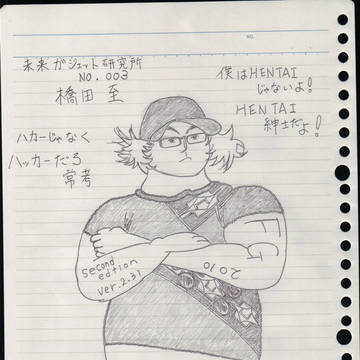 未来ガジェット研究所
NO.003
橋田 至
僕はHENTAI
じゃないよ!
HENTAI
紳士だよ!
ハカーじゃなく
ハッカーだろ
常考
second
edition
ver.2.31
FG
2010
NO.